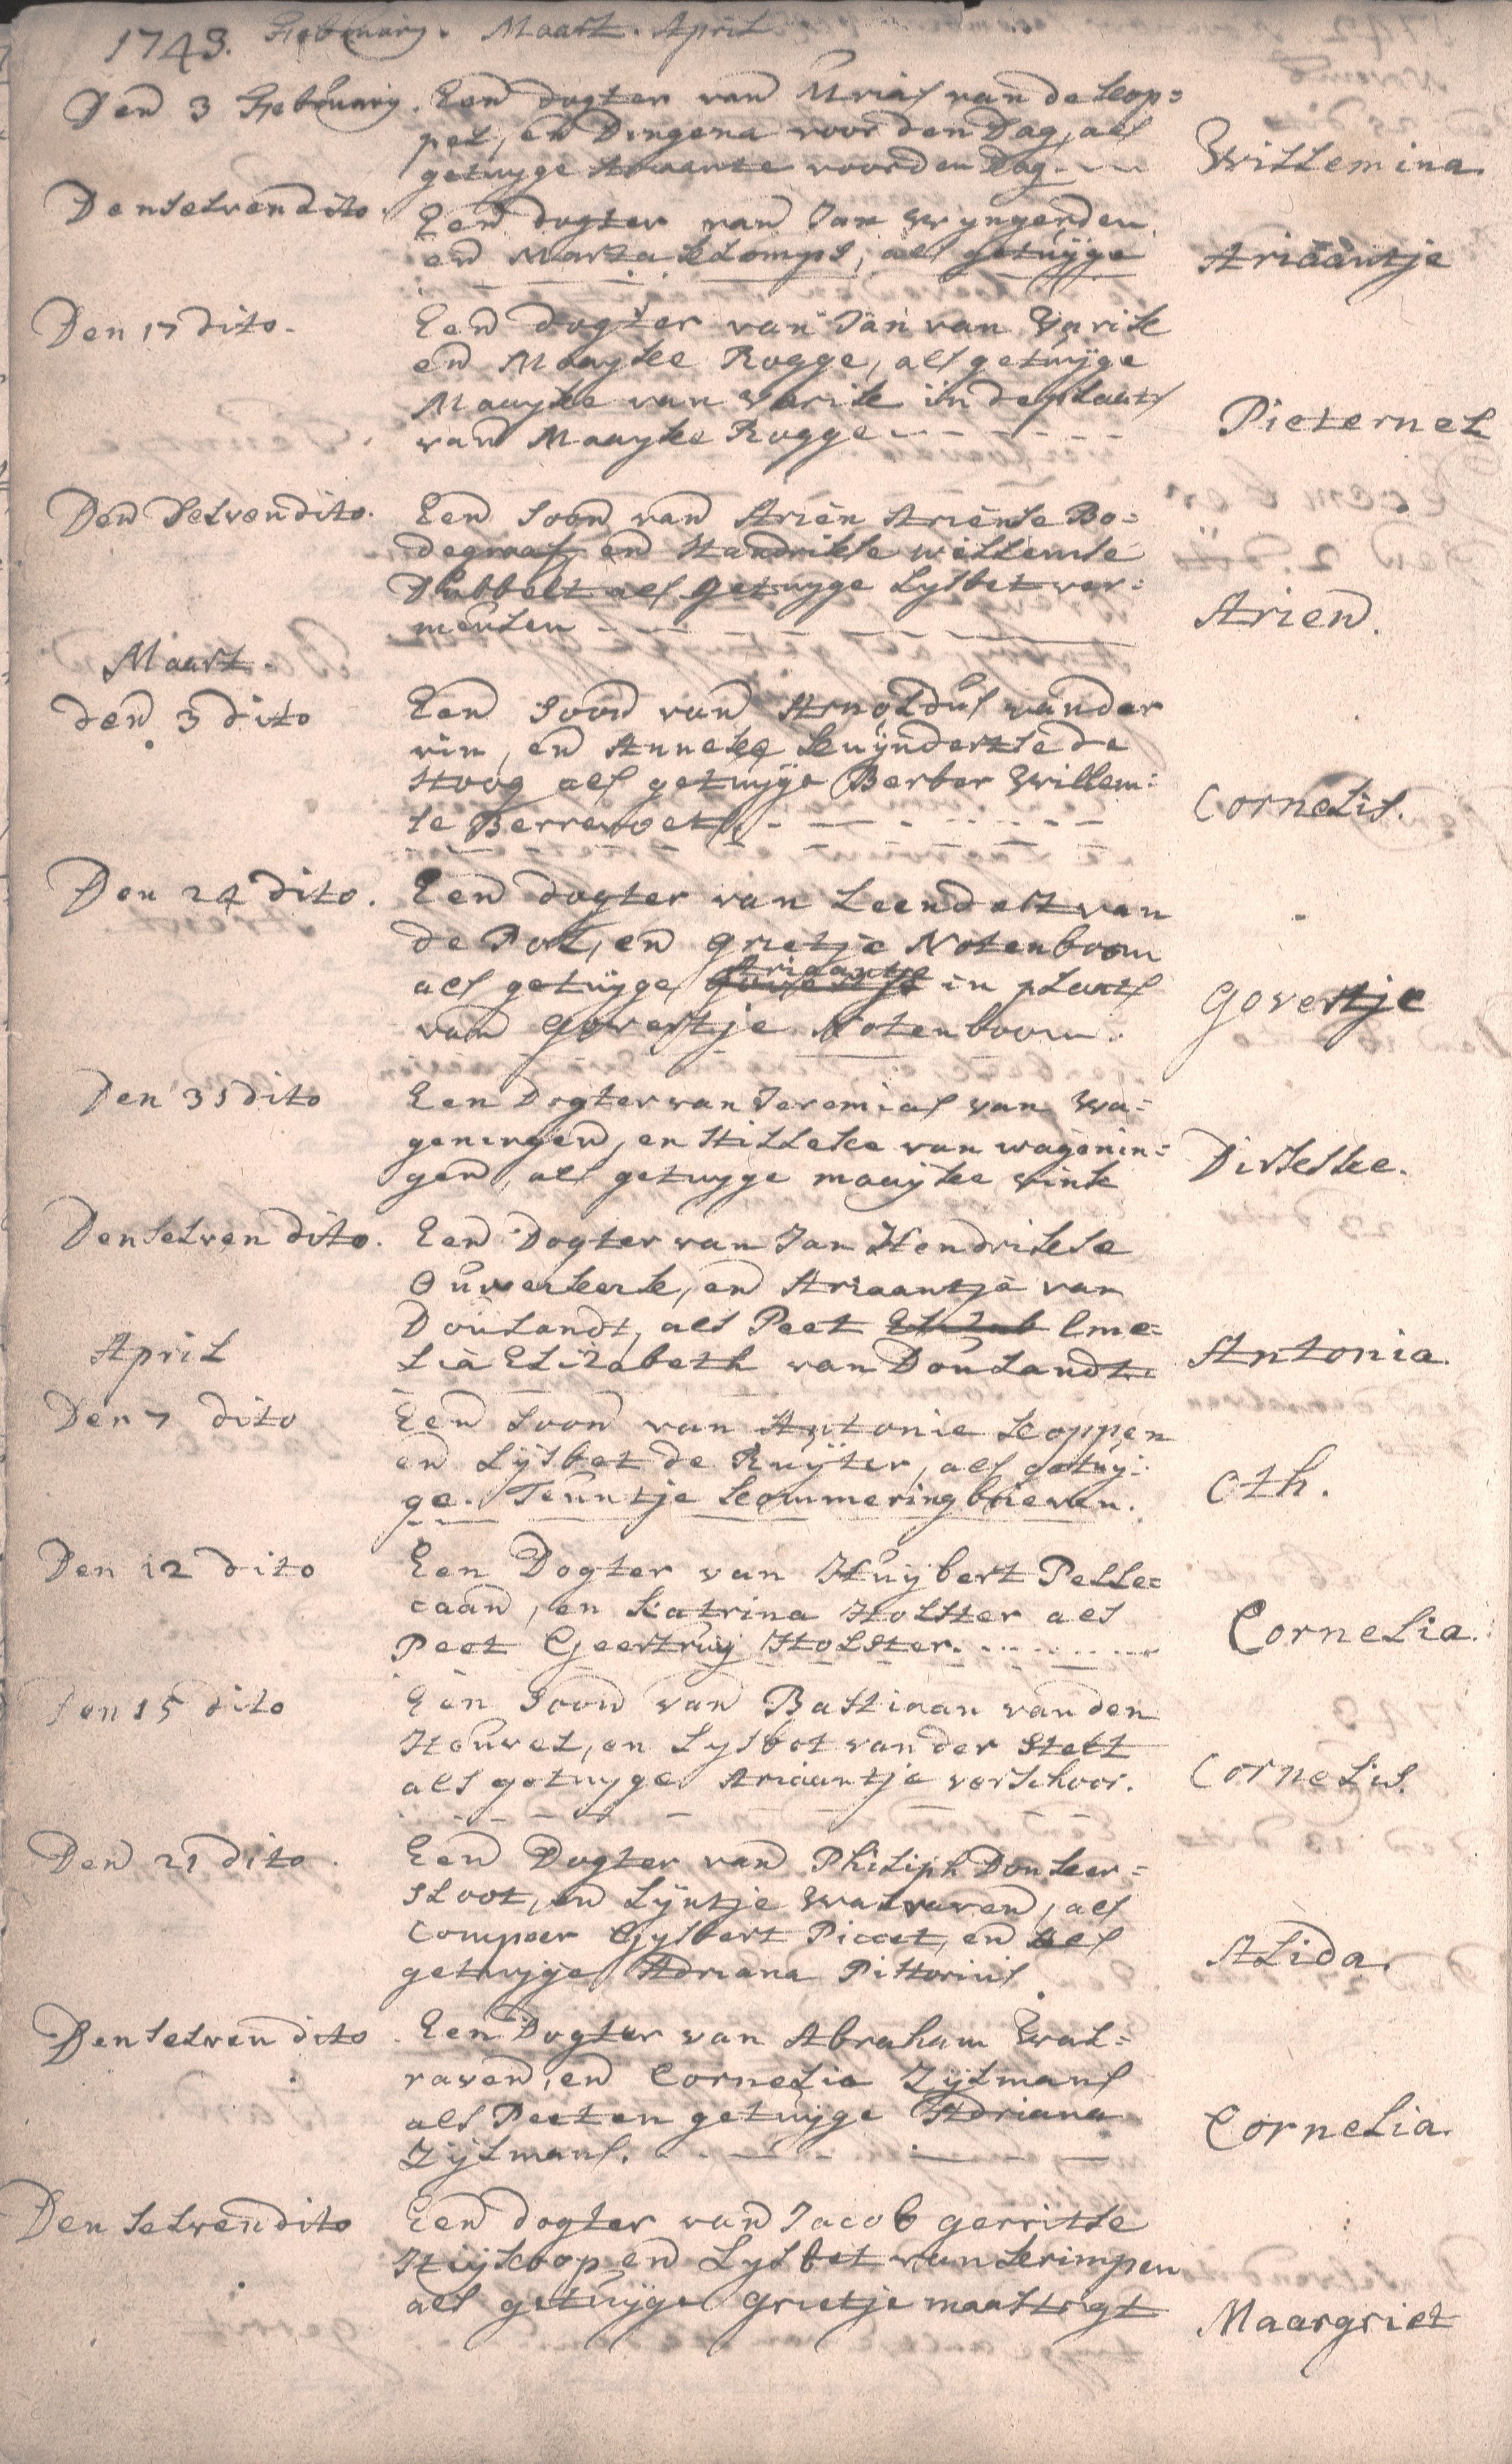 1743. February. Maart. April
Den 3 February. Een dogter van Urias van de kop=
pel, en Dingena voor den Dag, als
getuyge Ariaante voor den Dag.
Willemina.
Den selven dito. Een dogter van Jan Wyngerden
en Marta klomps, als getuÿge
Ariaantje
Den 17 dito. Een dogter van Jan van Varik
en Maayke Rogge, als getuÿge
Maayke van Varik in de plaats
van Maayke Rogge
Pieternel
Den Selven dito. Een Soon van Ariën Ariënse Bo=
degraaf en Handrikse willemse
Dubbelt als getuyge Lysbet ver=
meulen
Arien.
Maart.
den 3 dito Een Soon van Arnoldus vander
vin, en Anneke kuÿndertse de
Hoog als getuÿge Berber Willem=
se Berrevoets.
Cornelis.
Den 24 dito. Een dogter van Leendert van
de Pol, en grietje Notenboom
als getuÿge Ariaantje in plaats
van Govertje Notenboom.
Govertje
Den 31 dito Een Dogter van Jeremias van Wa=
geningen, en Hilleke van wagenin=
gen, als getuyge maaÿke vink
Dirkske.
Den selven dito. Een Dogter van Jan Hendrikse
Ouwerkerk, en Ariaantje van
Doulandt, als Peet Eme=
lia Elizabeth van Doulandt
Antonia.
April
Den 7 dito Een Soon van Antonie koppen
en Lÿsbet de Ruÿter, als getuÿ=
ge. Teuntje kommeringbrieven.
Oth.
Den 12 dito Een Dogter van Huÿbert Pelle=
caan, en katrina Holster als
Peet Geertruÿ Holster.
Cornelia.
Den 15 dito Een Soon van Bastiaan van den
Heuvel, en Lysbet van der Stelt
als getuyge Ariaantje verschoor.
Cornelis.
Den 21 dito. Een Dogter van Philiph Donker=
sloot, en Lÿntje Walraven, als
Compeer Gysbert Piccet, en als
getuÿge Adriana Pistorius.
Alida.
Den selven dito. Een Dogter van Abraham Wal=
raven, en Cornelia Zÿlmans
als Peet en getuÿge Adriana
Zÿlmans.
Cornelia.
Den selven dito Een dogter van Jacob gerritse
Huÿskoop en Lysbet van krimpen
als getuÿge Grietje maastrigt
Maargriet